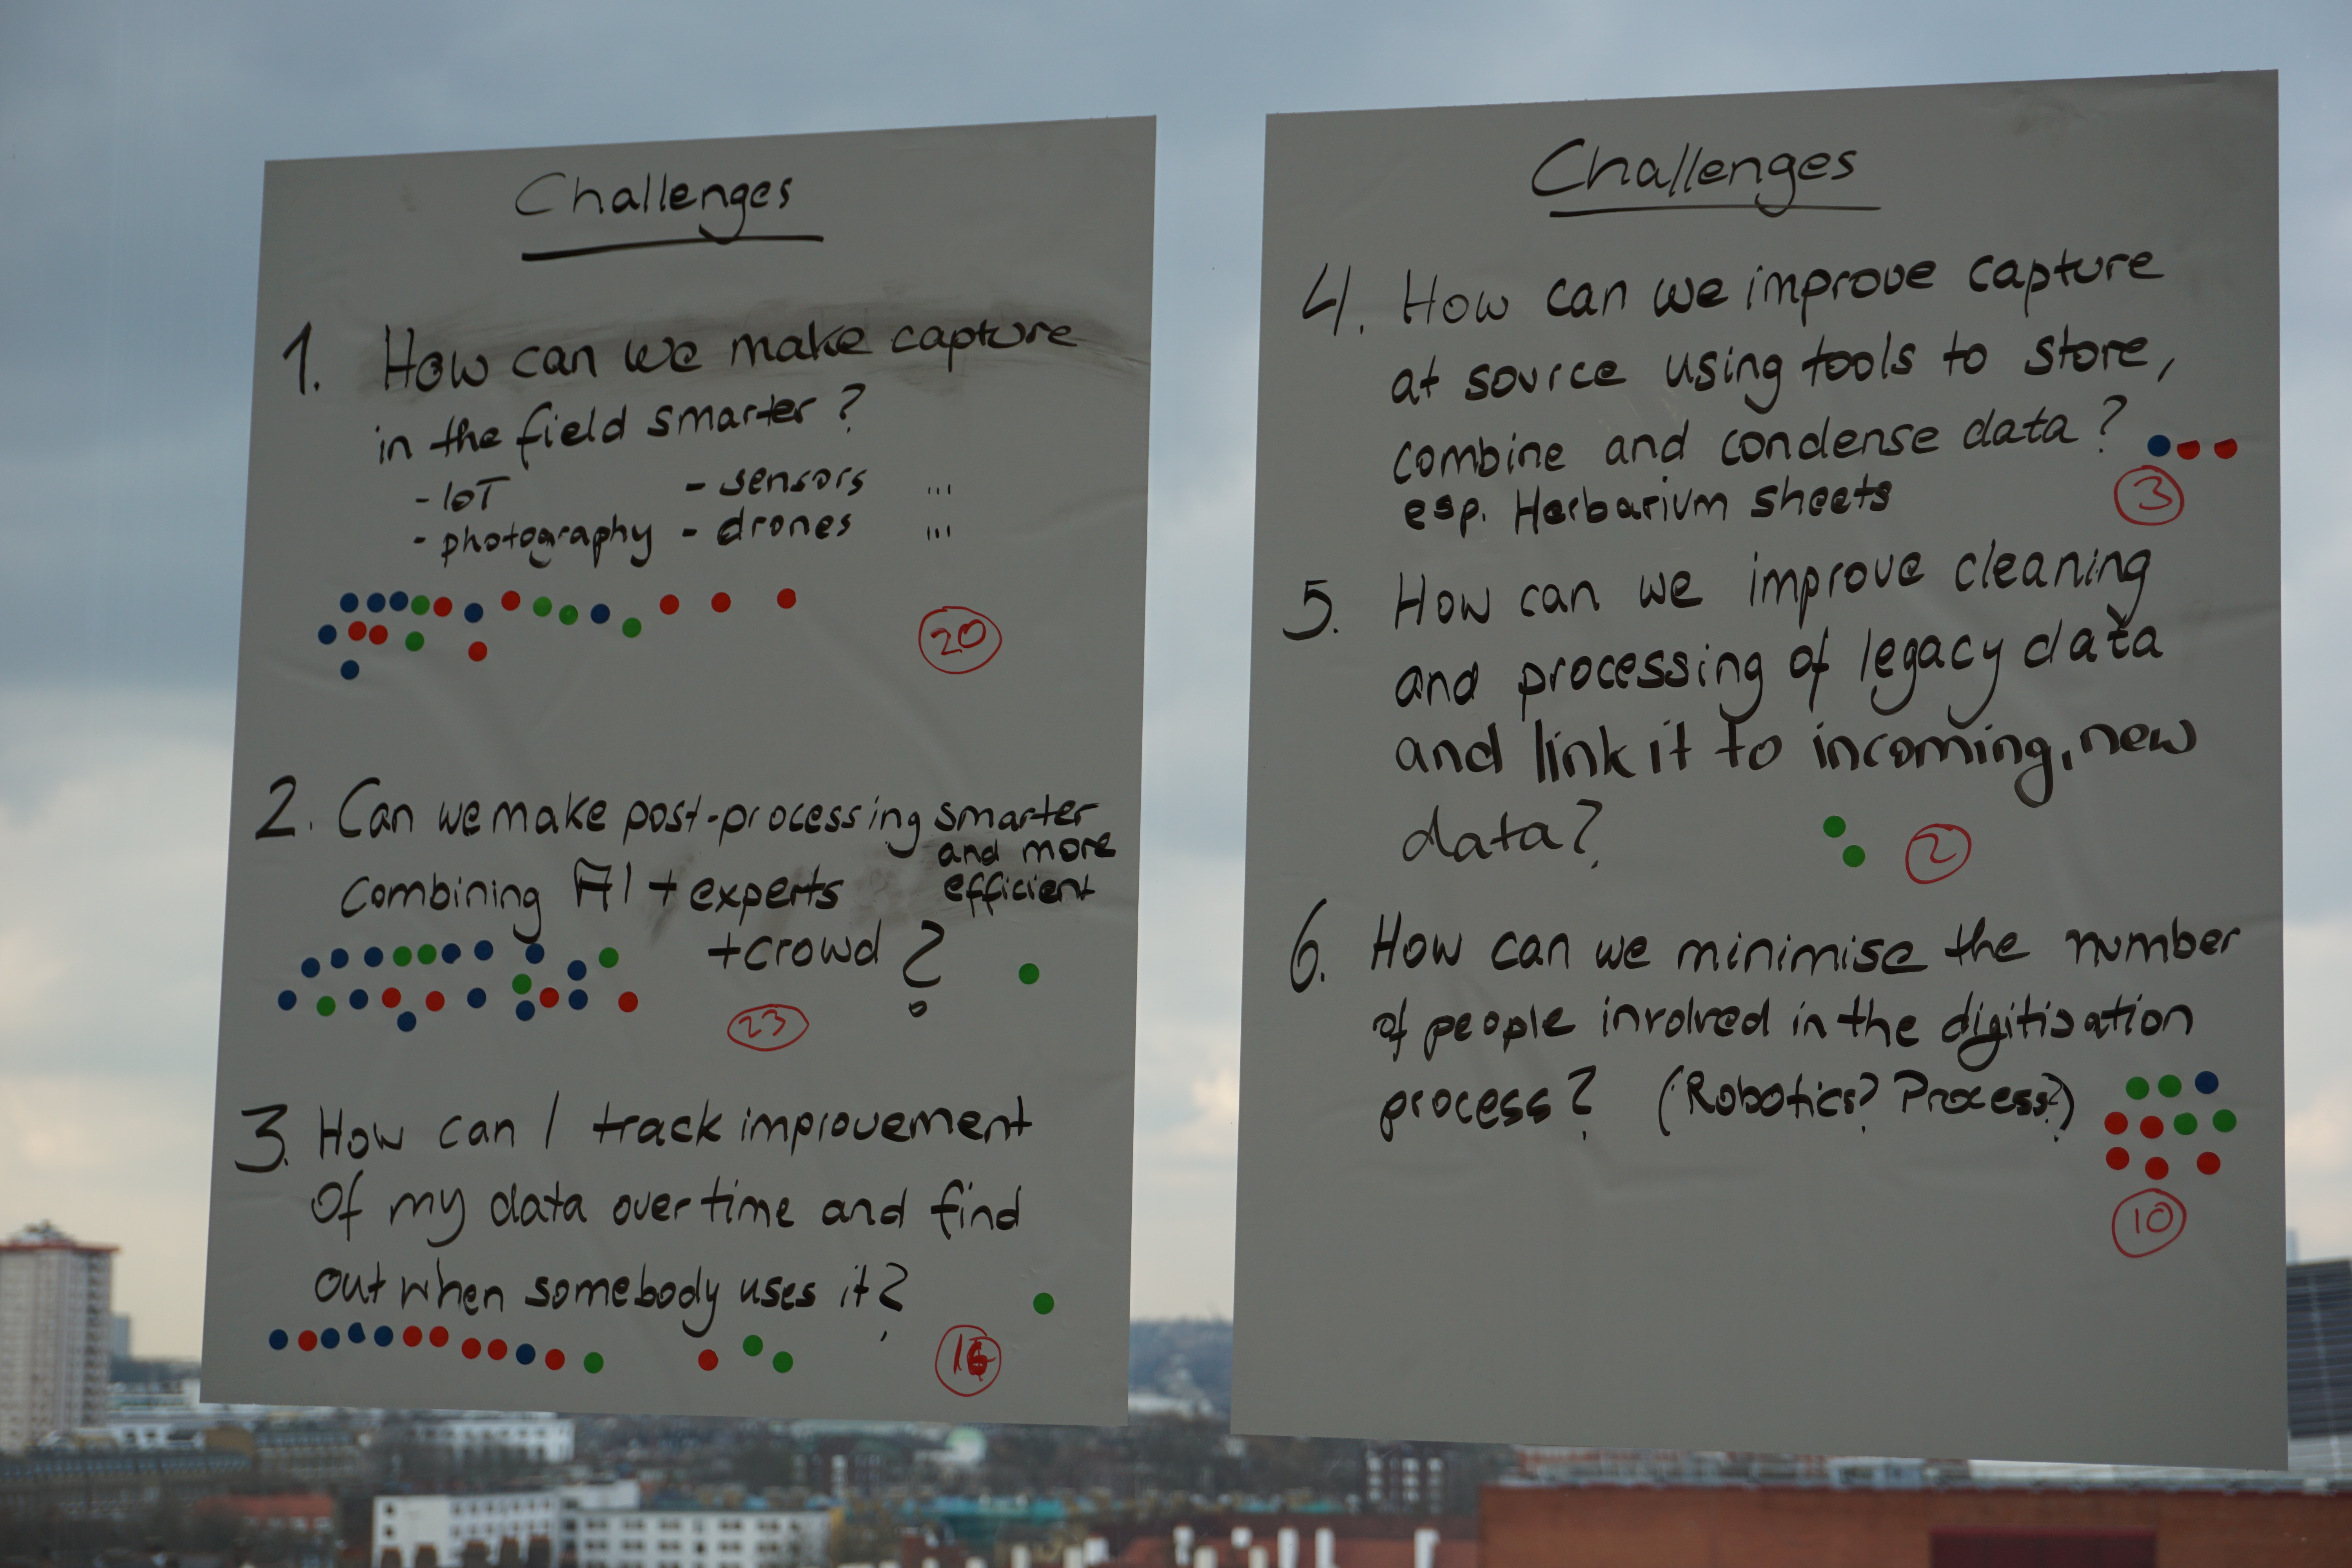 Challenges
1. How can we make capture
in the field smarter?
- IoT - sensors ...
- photography - drones ...
20
2. Can we make post-processing smarter
and more
combining AI + experts efficient
+ crowd ?
23
3. How can I track improvement
of my data over time and find
out when somebody uses it?
16
Challenges
4. How can we improve capture
at source using tools to store,
combine and condense data?
esp. Herbarium sheets
3
5. How can we improve cleaning
and processing of legacy data
and link it to incoming, new
data?
2
6. How can we minimise the number
of people involved in the digitisation
process? (Robotics? Process?)
10